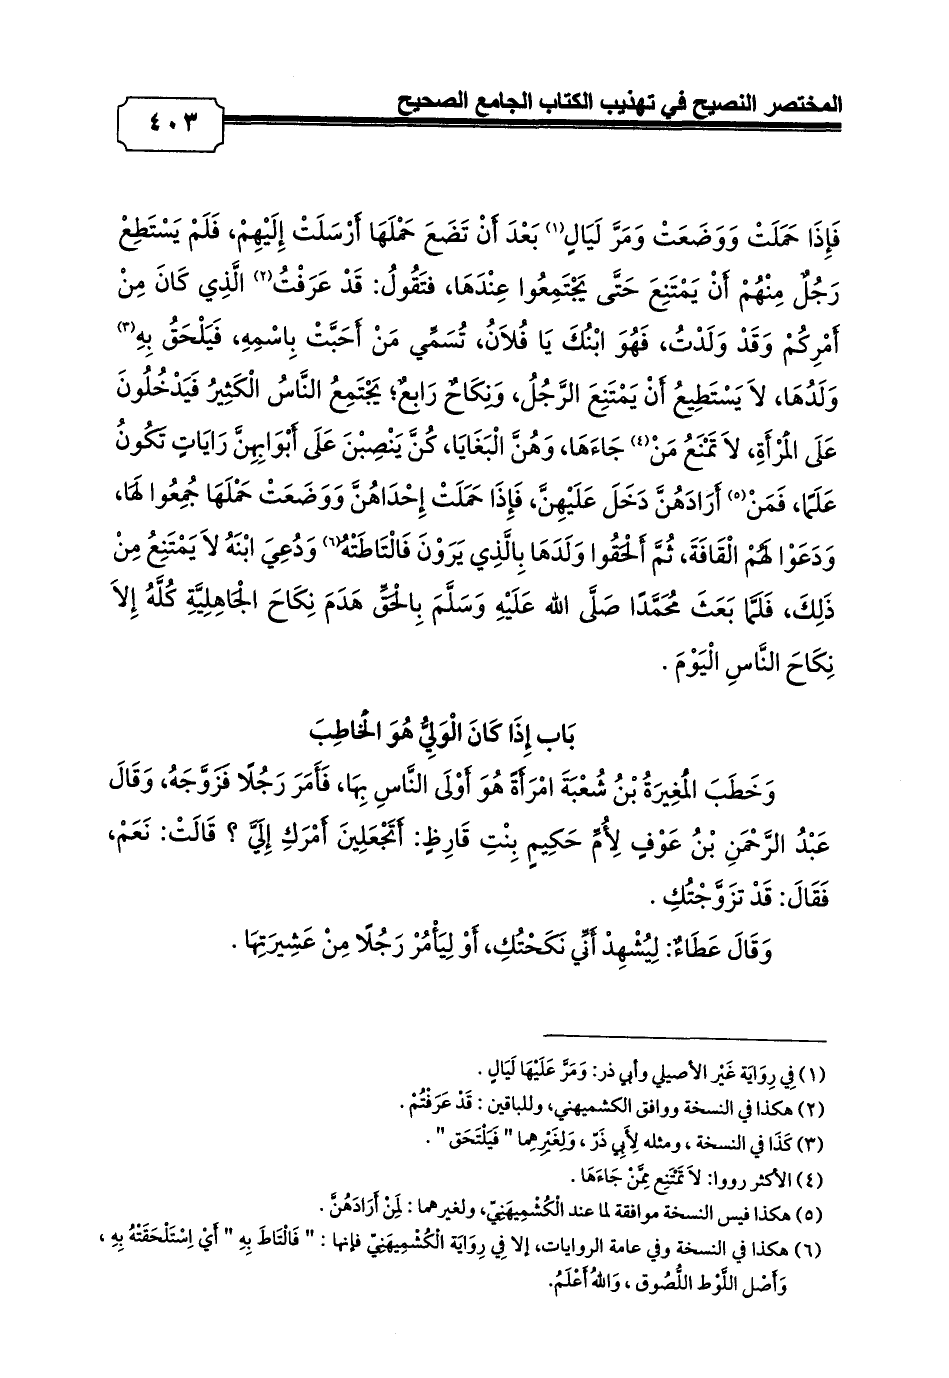 المختصر النصيح في تهذيب الكتاب الجامع الصحيح
٤٠٣
فَإِذَا حَمَلَتْ وَوَضَعَتْ وَمَرَّ لَيَالٍ(١) بَعْدَ أَنْ تَضَعَ حَمْلَهَا أَرْسَلَتْ إِلَيْهِمْ، فَلَمْ يَسْتَطِعْ
رَجُلٌ مِنْهُمْ أَنْ يَمْتَنِعَ حَتَّى يَجْتَمِعُوا عِنْدَهَا، فتَقُولُ: قَدْ عَرَفْتُ(٢) الَّذِي كَانَ مِنْ
أَمْرِكُمْ وَقَدْ وَلَدْتُ، فَهُوَ ابْنُكَ يَا فُلَانُ، تُسَمِّي مَنْ أَحَبَّتْ بِاسْمِهِ، فَيَلْحَقُ بِهِ(٣)
وَلَدُهَا، لاَ يَسْتَطِيعُ أَنْ يَمْتَنِعَ الرَّجُلُ، وَنِكَاحٌ رَابِعٌ؛ يَجْتَمِعُ النَّاسُ الْكَثِيرُ فَيَدْخُلُونَ
عَلَى الْمَرْأَةِ، لاَ تَمْنَعُ مَنْ(٤) جَاءَهَا، وَهُنَّ الْبَغَايَا، كُنَّ يَنْصِبْنَ عَلَى أَبْوَابِهِنَّ رَايَاتٍ تَكُونُ
عَلَمًا، فَمَنْ(٥) أَرَادَهُنَّ دَخَلَ عَلَيْهِنَّ، فَإِذَا حَمَلَتْ إِحْدَاهُنَّ وَوَضَعَتْ حَمْلَهَا جُمِعُوا لَهَا،
وَدَعَوْا لَهُمْ الْقَافَةَ، ثُمَّ أَلْحَقُوا وَلَدَهَا بِالَّذِي يَرَوْنَ فَالْتَاطَتْهُ(٦) وَدُعِيَ ابْنَهُ لاَ يَمْتَنِعُ مِنْ
ذَلِكَ، فَلَمَّا بَعَثَ مُحَمَّدًا صَلَّى الله عَلَيْهِ وَسَلَّمَ بِالْحَقِّ هَدَمَ نِكَاحَ الْجَاهِلِيَّةِ كُلَّهُ إِلاَ
نِكَاحَ النَّاسِ الْيَوْمَ .
بَاب إِذَا كَانَ الْوَلِيُّ هُوَ الْخَاطِبَ
وَخَطَبَ الْمُغِيرَةُ بْنُ شُعْبَةَ امْرَأَةً هُوَ أَوْلَى النَّاسِ بِهَا، فَأَمَرَ رَجُلًا فَزَوَّجَهُ، وَقَالَ
عَبْدُ الرَّحْمَنِ بْنُ عَوْفٍ لِأُمِّ حَكِيمٍ بِنْتِ قَارِظٍ: أَتَجْعَلِينَ أَمْرَكِ إِلَيَّ ؟ قَالَتْ: نَعَمْ،
فَقَالَ: قَدْ تزَوَّجْتُكِ .
وَقَالَ عَطَاءٌ: لِيُشْهِدْ أَنِّي نَكَحْتُكِ، أَوْ لِيَأْمُرْ رَجُلًا مِنْ عَشِيرَتِهَا .
(١) فِي رِوَايَة غَيْر الأصيلي وأبي ذر: وَمَرَّ عَلَيْهَا لَيَالٍ .
(٢) هكذا في النسخة ووافق الكشميهني، وللباقين : قَدْ عَرَفْتُمْ .
(٣) كَذَا في النسخة ، ومثله لِأَبِي ذَرّ ، وَلِغَيْرِهِما " فَيَلْتَحَق " .
(٤) الأكثر رووا: لاَ تَمْتَنِع مِمَّنْ جَاءَهَا .
(٥) هكذا فيس النسخة موافقة لما عند الْكُشْمِيهَنِيّ، ولغيرهما : لِمَنْ أَرَادَهُنَّ .
(٦) هكذا في النسخة وفي عامة الروايات، إلا فِي رِوَايَة الْكُشْمِيهَنِيّ فإنها : " فَالْتَاطَ بِهِ " أَيْ اِسْتَلْحَقَتْهُ بِهِ ،
وَأَصْل اللَّوْط اللُّصُوق ، وَاللهُ أَعْلَمُ.